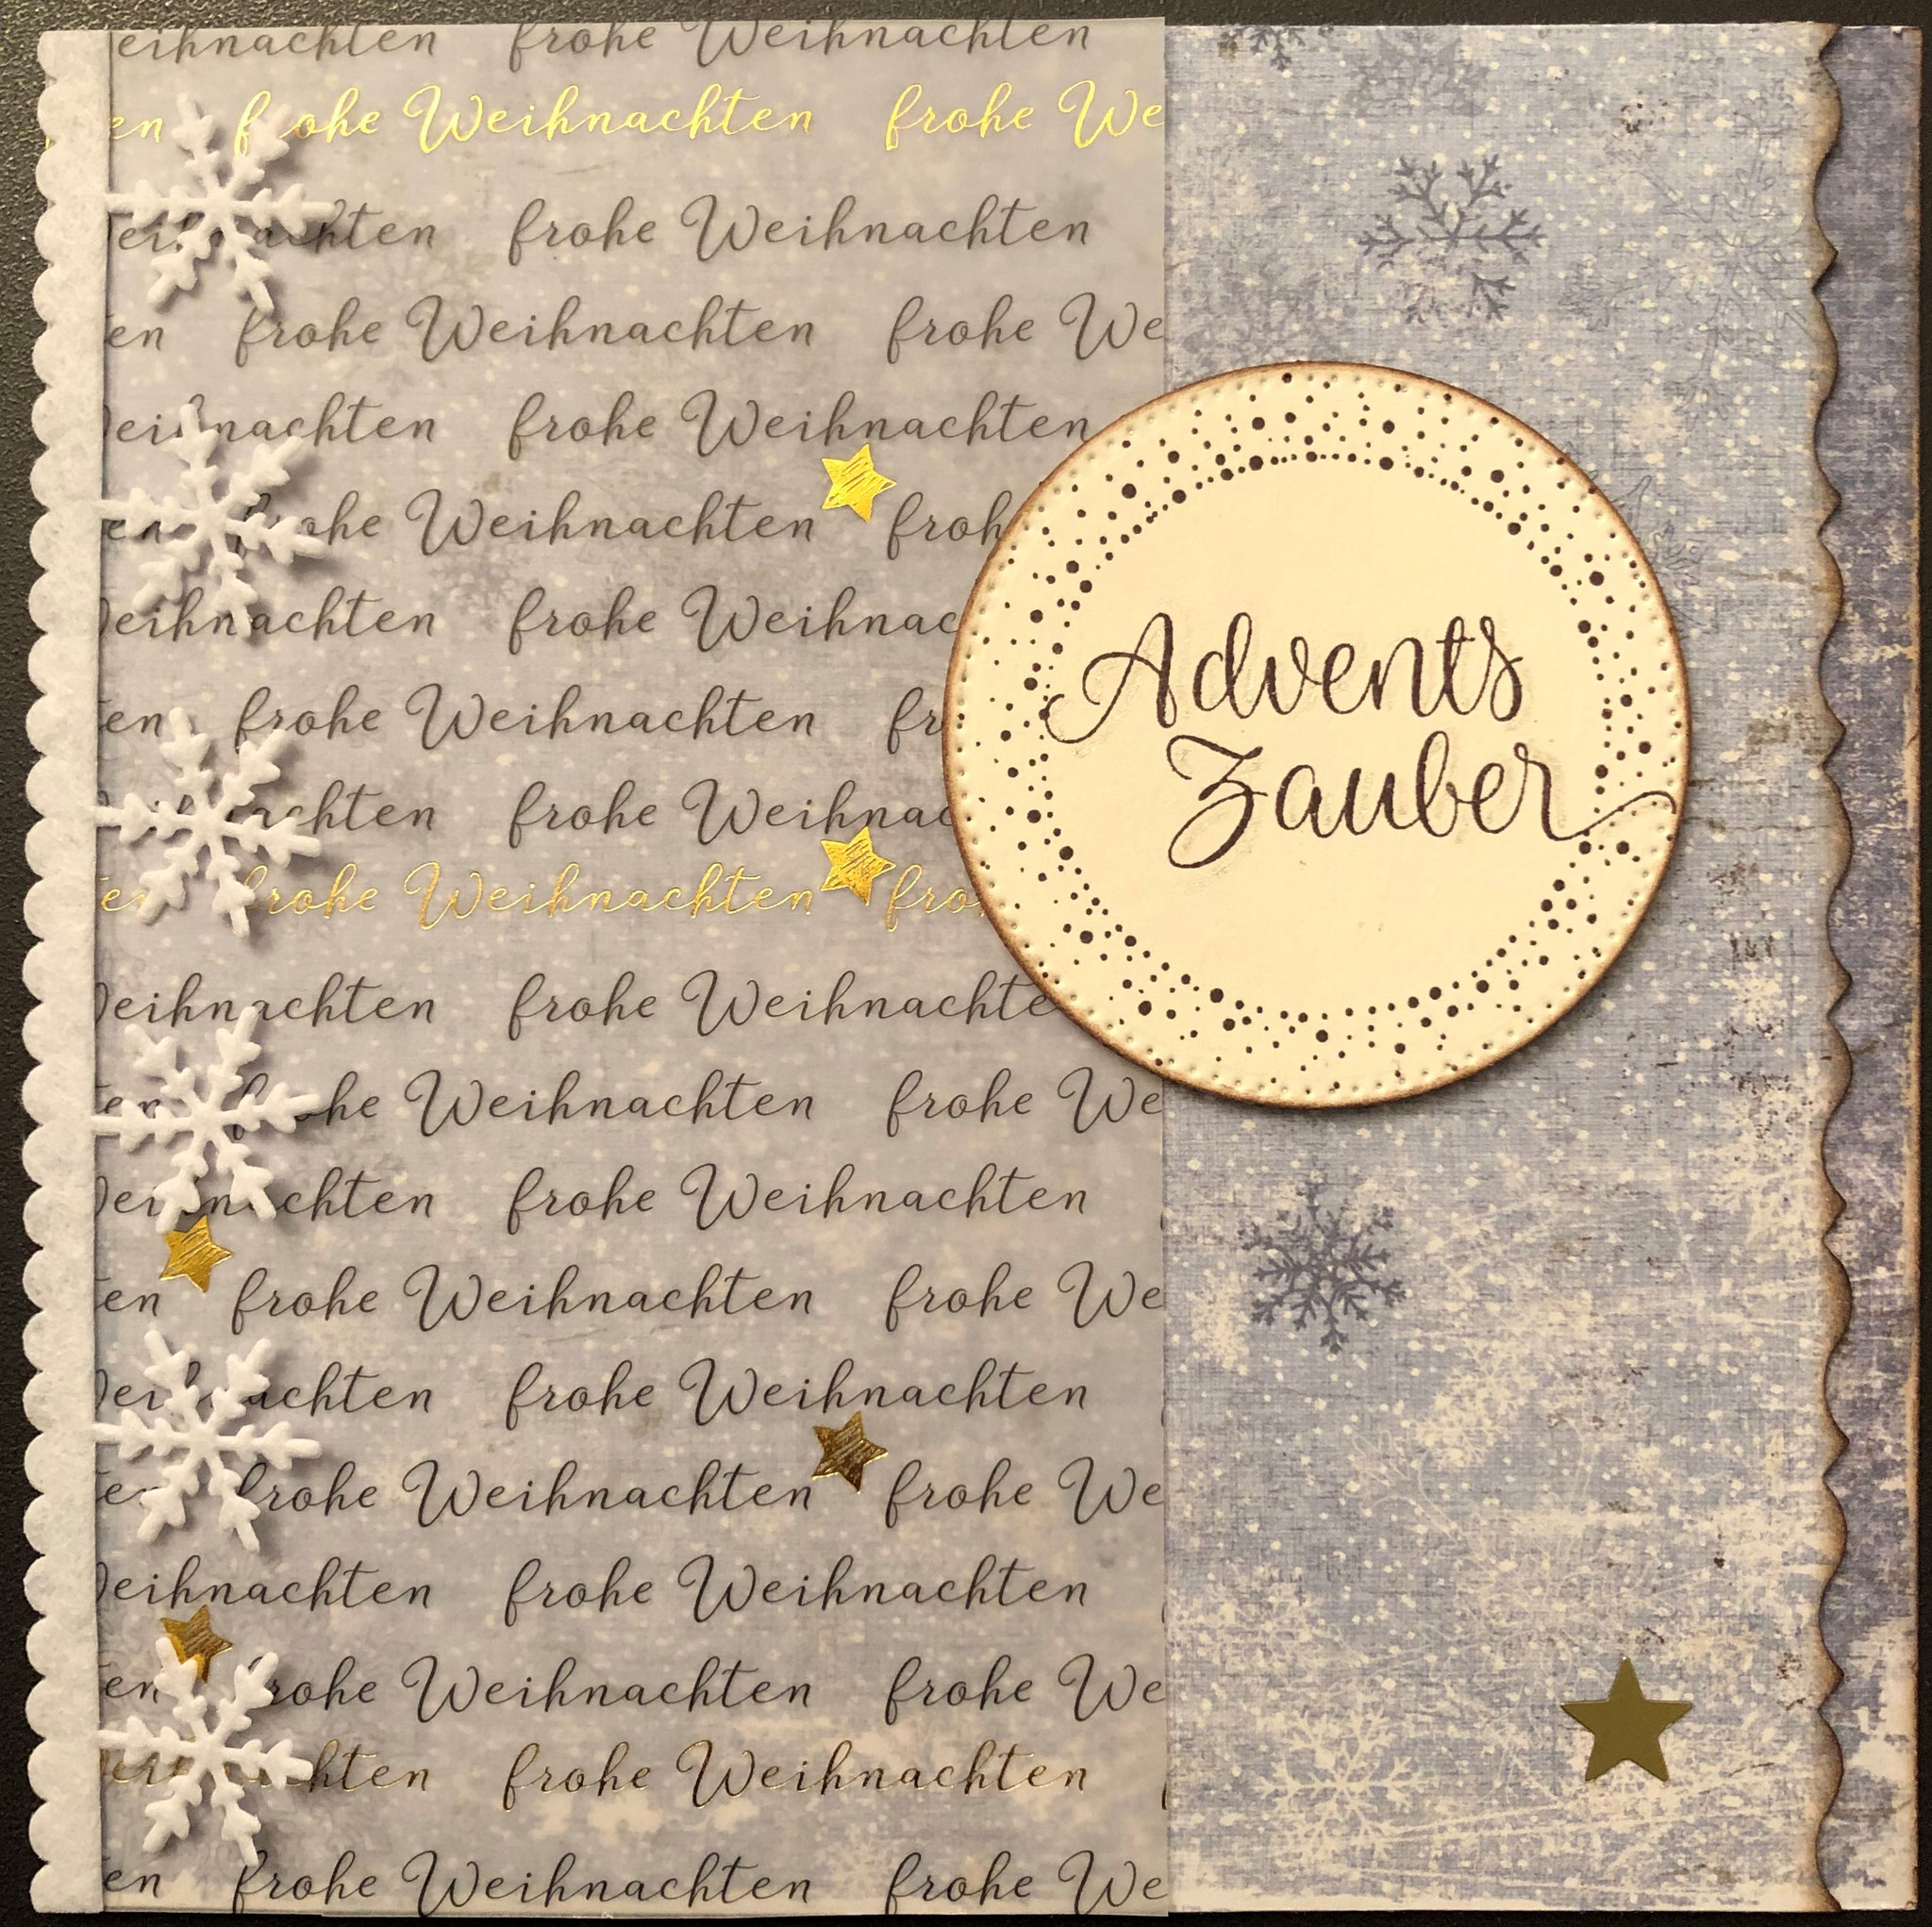 eihnachten frohe Weihnachten
en frohe Weihnachten frohe We
ei achten frohe Weihnachten
en frohe Weihnachten frohe We
eihnachten frohe Weihnachten
en frohe Weihnachten froh
eihnachten frohe Weihnac
en frohe Weihnachten fr
achten frohe Weihnac
en frohe Weihnachten fro
eihnachten frohe Weihnachte
en frohe Weihnachten frohe We
eihnachten frohe Weihnachten
en frohe Weihnachten frohe We
ei achten frohe Weihnachten
en frohe Weihnachten frohe We
eihnachten frohe Weihnachten
en frohe Weihnachten frohe We
hten frohe Weihnachten
en frohe Weihnachten frohe We
Advents
Zauber